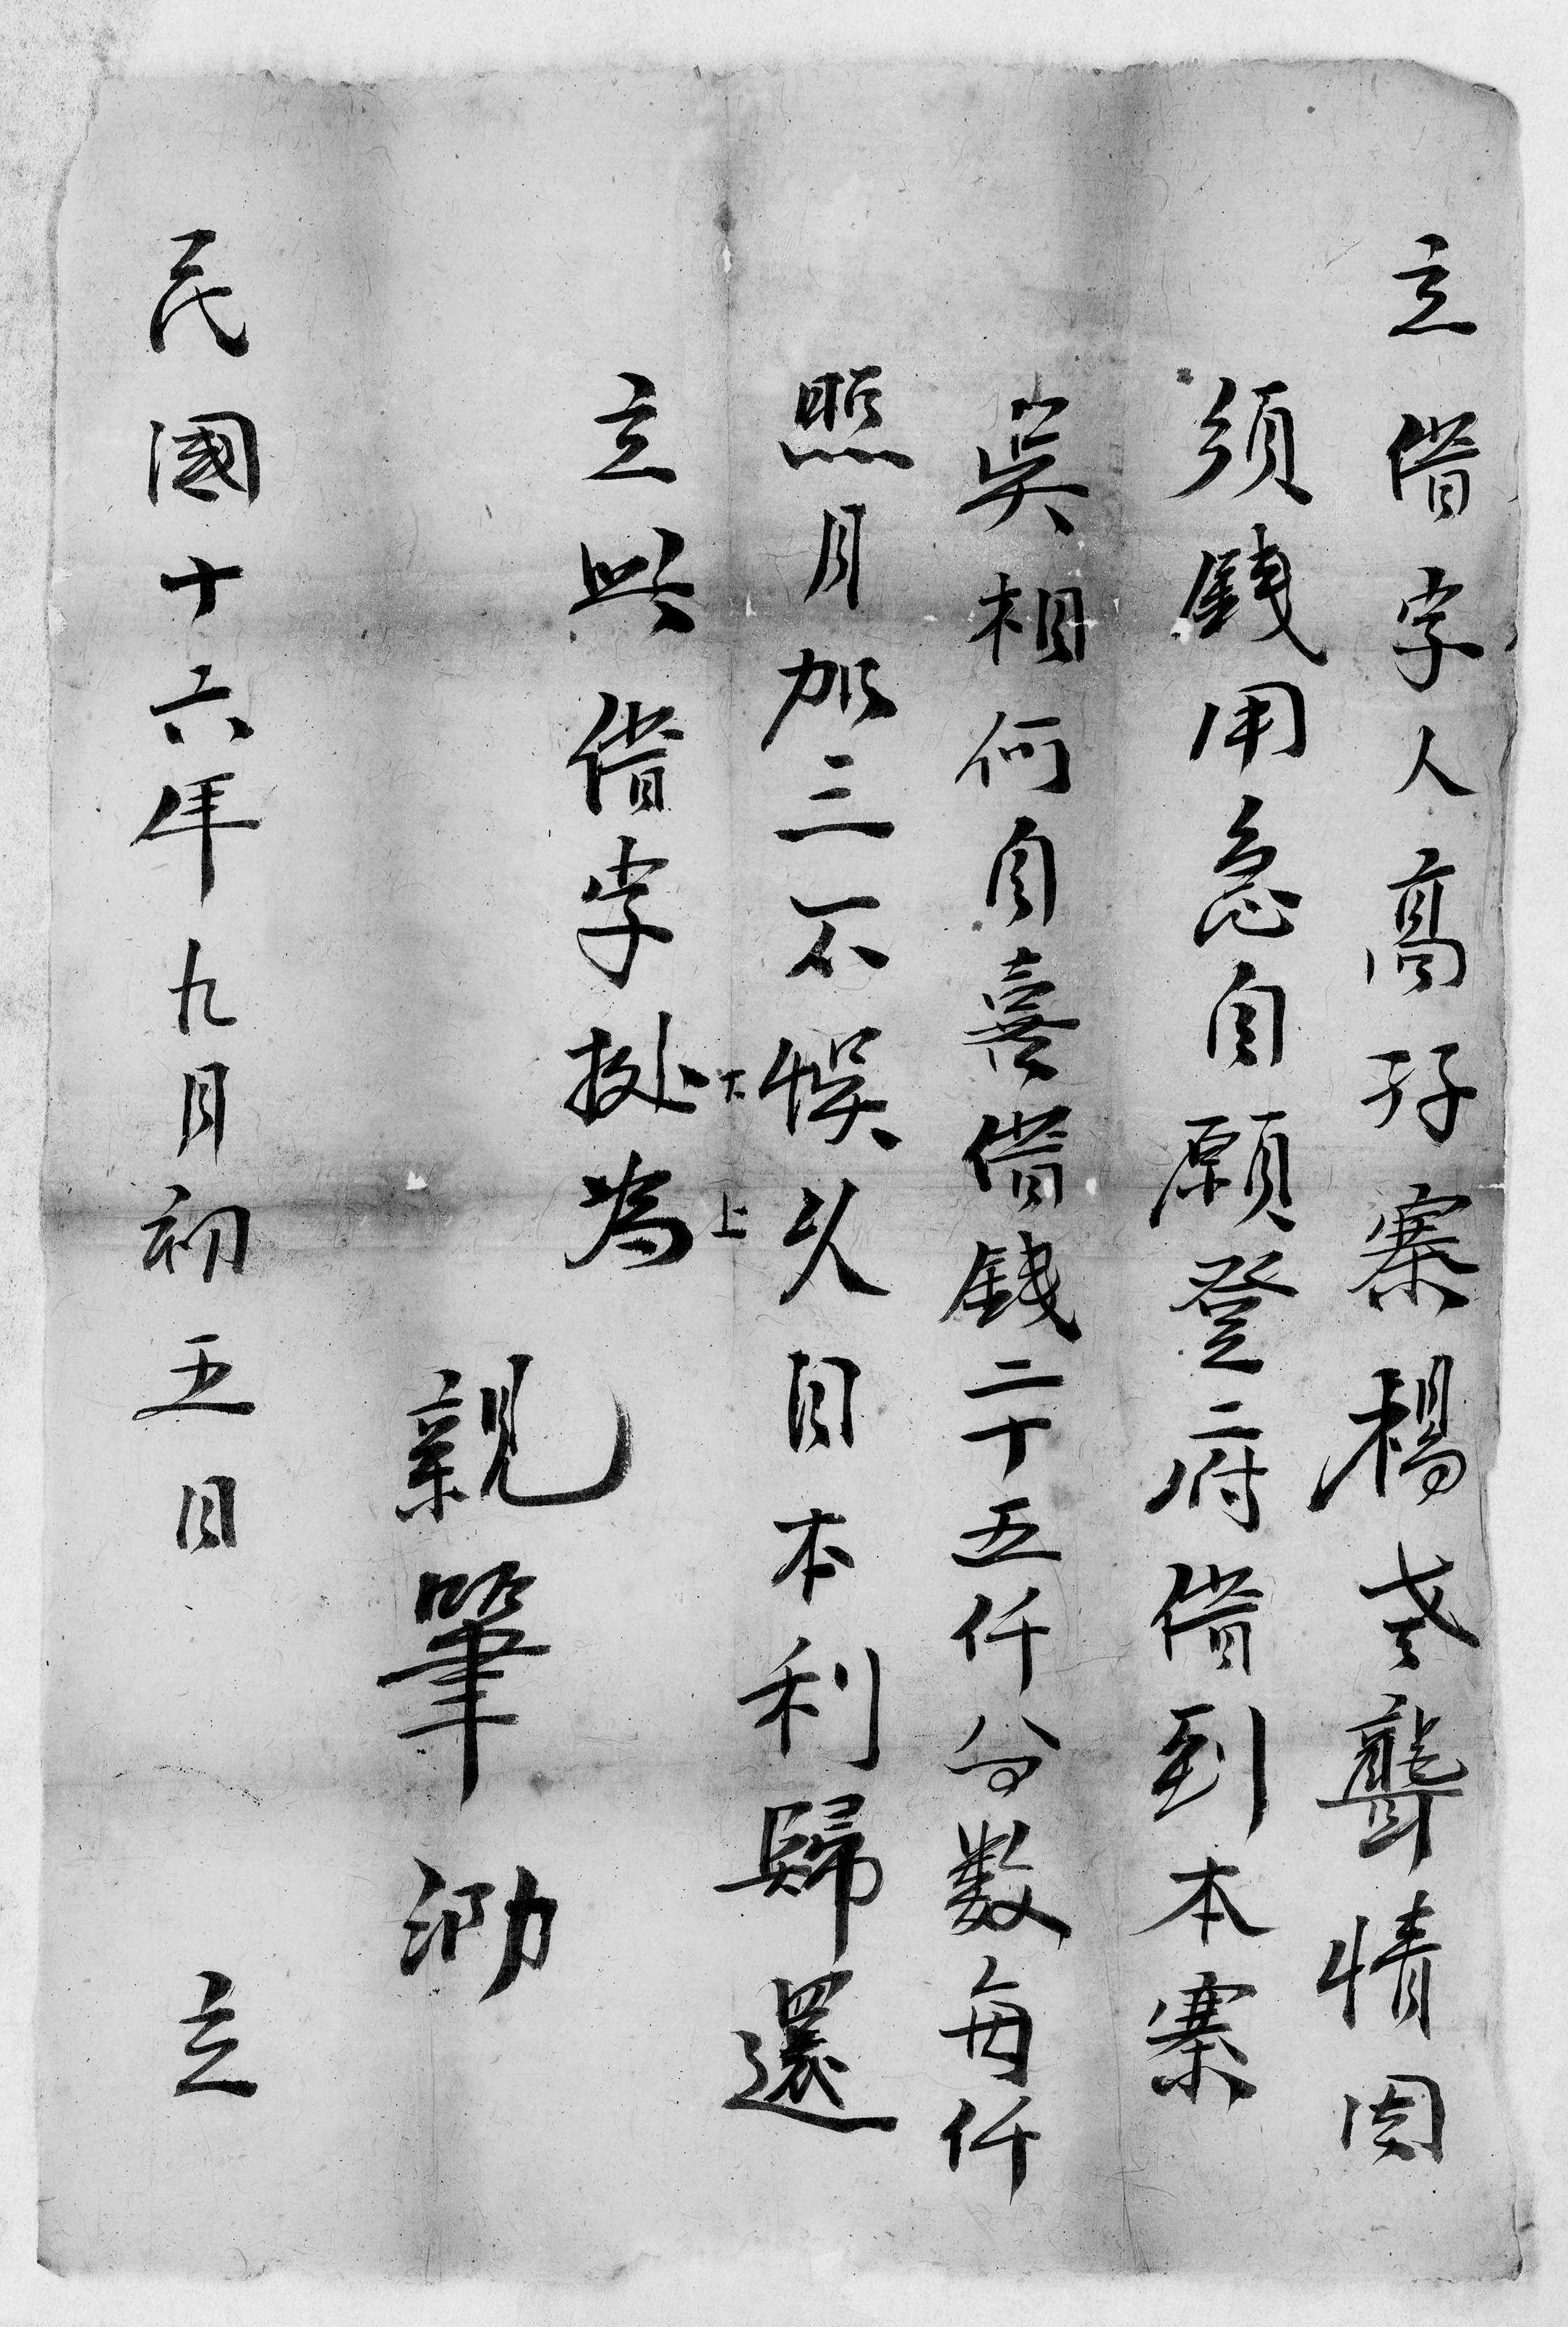 立借字人高孖寨楊老聾情因
須錢用急自願登府借到本寨
吳相何自喜借錢二十五仟㕣数每仟
照月加三不悞久日本利歸還
立此借字挩為
下上
親筆
民國十六年九月初五日立